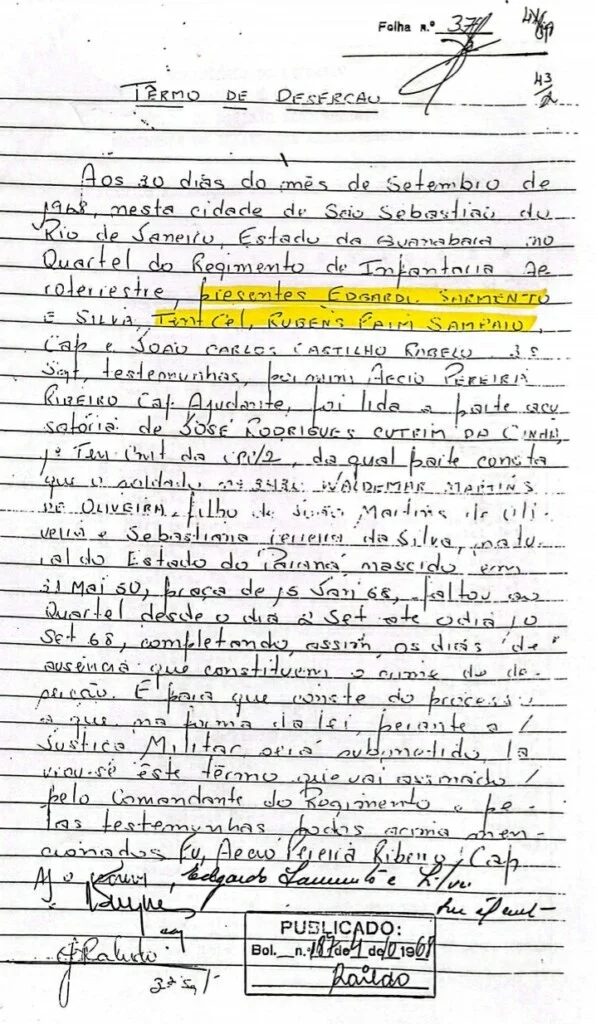 Folha n.º 37
43
TÊRMO DE DESERÇAO
Aos 30 dias do mês de Setembro de
1968, nesta cidade de São Sebastião do
Rio de Janeiro, Estado da Guanabara no
Quartel do Regimento de Infantaria Ae
roterrestre, presentes EDGARD SARMENTO
E SILVA, Ten Cel, RUBENS PAIM SAMPAIO,
Cap e JOÃO CARLOS CASTILHO RABELO 3º
Sgt, testemunhas, por mim Aecio PEREIRA
RIBEIRO Cap Ajudante, foi lida a parte acu
satória de JOSÉ RODRIGUES CUTRIM DA CUNHA,
1º Ten Cmt da da qual parte consta
que o soldado nº WALDEMAR MARTINS
DE OLIVEIRA, filho de João Martins de Oli
veira e Sebastiana Ferreira da Silva, natu
ral do Estado do Paraná, nascido em
21 Mai 50, praça de 15 Jan 68, faltou ao
Quartel desde o dia 2 Set até o dia 10
Set 68, completando, assim, os dias de
ausência que constituem o crime de de
serção. E para que conste do processo
a que, na forma da lei, perante a /
Justiça Militar, será submetido, la
vrou-se êste têrmo que vai assinado /
pelo Comandante do Regimento e pe-
las testemunhas todos acima men-
cionados Eu, Aecio Pereira Ribeiro, Cap
Edgardo Sarmento e Silva
PUBLICADO:
Bol. n.º 187 de 4 de 10 1968
3º Sgt